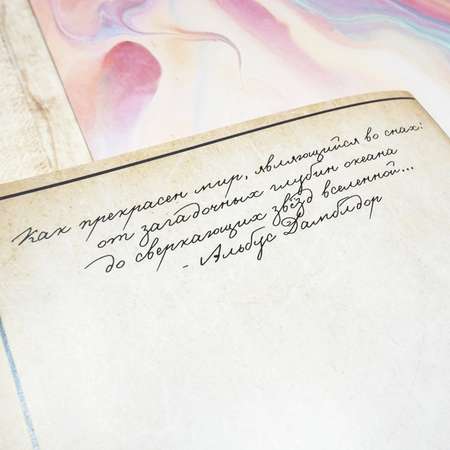 Как прекрасен мир, являющийся во снах:
от загадочных глубин океана
до сверкающих звёзд вселенной...
- Альбус Дамблдор